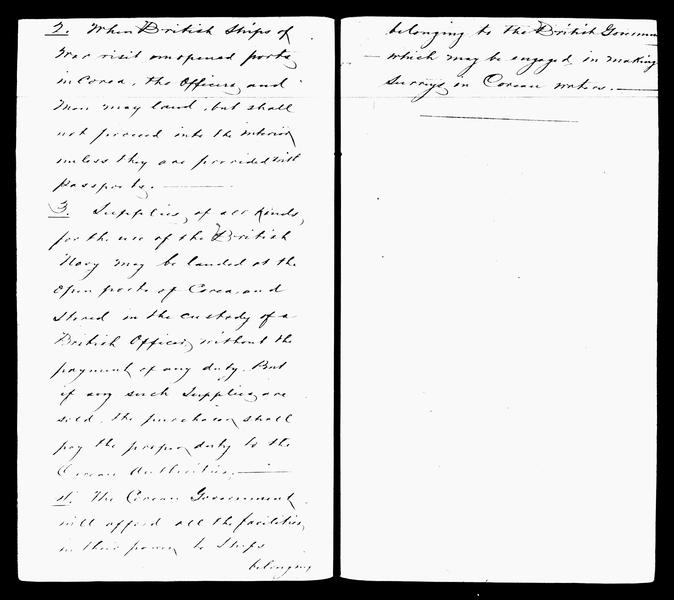 2. When British Ships of
War visit unopened ports
in Corea, the Officers and
Men may land, but shall
not proceed into the interior
unless they are provided with
passports.
3. Supplies, of all kinds,
for the use of the British
Navy may be landed at the
open ports of Corea and
stored in the custody of a
British Officer, without the
payment of any duty. But
if any such Supplies are
sold, the purchaser shall
pay the proper duty to the
Corean Authorities.
4. The Corean Government
will afford all the facilities
in their power to Ships
belonging
belonging to the British Governm
which may be engaged in making
surveys in Corean waters.